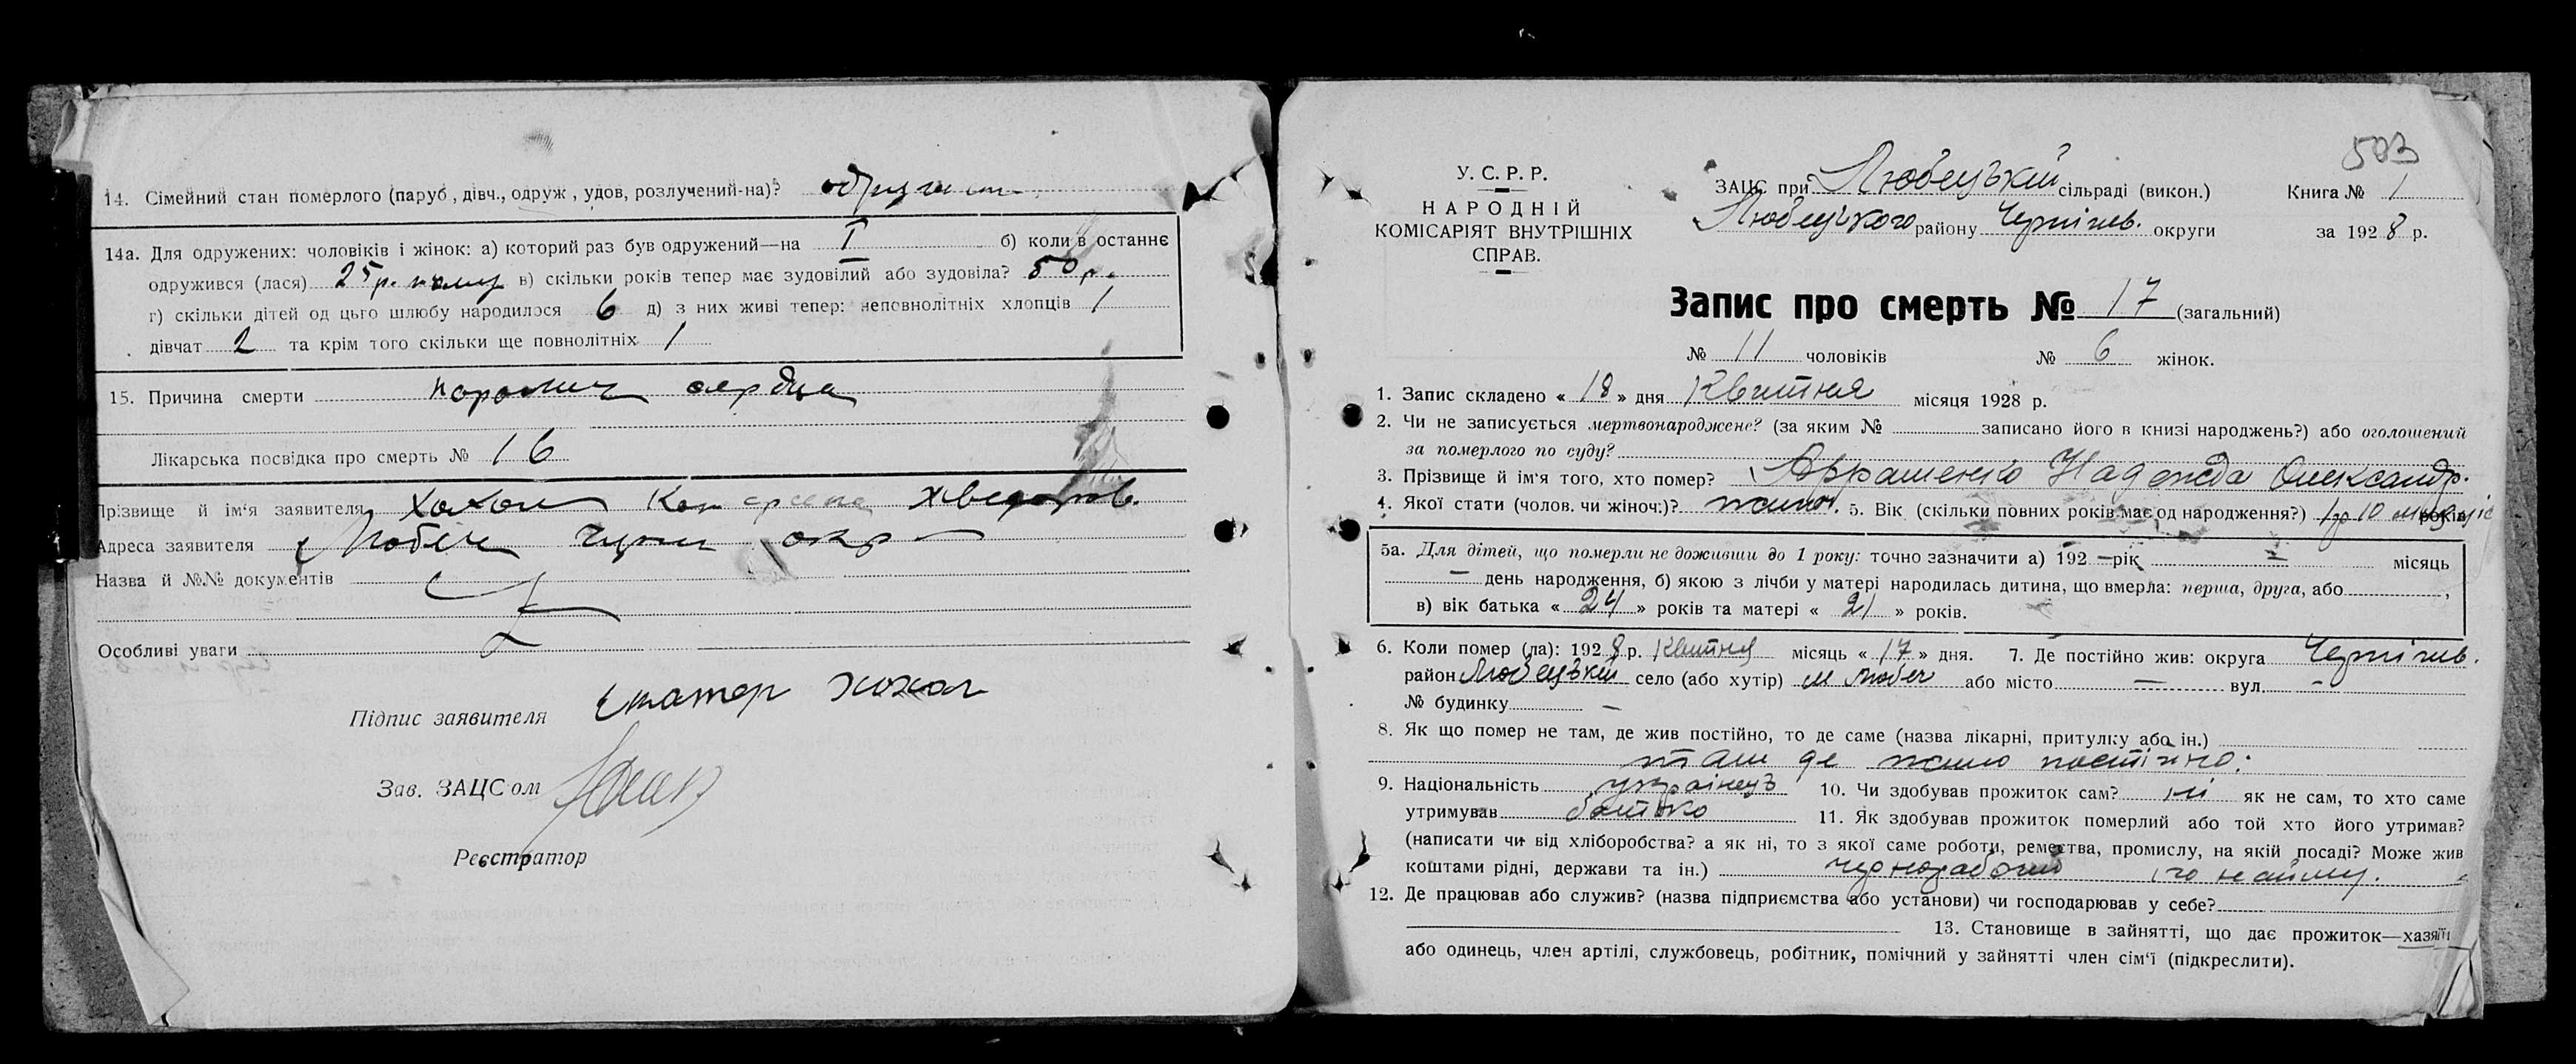 14. Сімейний стан померлого (паруб, дівч., одруж, удов, розлучений-на)?
14а. Для одружених: чоловіків і жінок: а) которий раз був одружений—на I б) коли в останнє
одружився (лася) 25 р. в) скільки років тепер має зудовілий або зудовіла? 50 р.
г) скільки дітей од цього шлюбу народилося 6 д) з них живі тепер: неповнолітніх хлопців 1
дівчат 2 та крім того скільки ще повнолітніх 1
15. Причина смерти паралич сердца
Лікарська посвідка про смерть № 16
Прізвище й ім'я заявителя Хохол
Адреса заявителя Любеч окр
Назва й №№ документів
Особливі уваги
Підпис заявителя Хохол
Зав. ЗАЦСом
Реєстратор
503
У. С. Р. Р.
НАРОДНІЙ
КОМІСАРІЯТ ВНУТРІШНІХ
СПРАВ.
ЗАЦС при Любецькій сільраді (викон.) Книга № 1
Любецького району Чернігів. округи за 1928 р.
Запис про смерть № 17 (загальний)
№ 11 чоловіків № 6 жінок.
1. Запис складено « 18 » дня Квитня місяця 1928 р.
2. Чи не записується мертвонароджене? (за яким № записано його в книзі народжень?) або оголошений
за померлого по суду?
3. Прізвище й ім'я того, хто помер? Надежда Олександр.
4. Якої стати (чолов. чи жіноч:)? жіноч. 5. Вік (скільки повних років має од народження?) 10 років
5а. Для дітей, що померли не доживши до 1 року: точно зазначити а) 192 — рік — місяць
— день народження, б) якою з лічби у матері народилась дитина, що вмерла: перша, друга, або ,
в) вік батька « 24 » років та матері « 21 » років.
6. Коли помер (ла): 1928 р. Квитня місяць « 17 » дня. 7. Де постійно жив: округа Чернігів.
район Любецькій село (або хутір) м Любеч або місто — вул. —
№ будинку —
8. Як що помер не там, де жив постійно, то де саме (назва лікарні, притулку або ін.)
там де жило постійно.
9. Національність украінець 10. Чи здобував прожиток сам? ні як не сам, то хто саме
утримував батько 11. Як здобував прожиток померлий або той хто його утримав?
(написати чи від хліборобства? а як ні, то з якої саме роботи, ремества, промислу, на якій посаді? Може жив
коштами рідні, держави та ін.) чорнорабочий по найму.
12. Де працював або служив? (назва підприємства або установи) чи господарював у себе?
13. Становище в зайнятті, що дає прожиток—хазяїн
або одинець, член артілі, службовець, робітник, помічний у зайнятті член сім'ї (підкреслити).